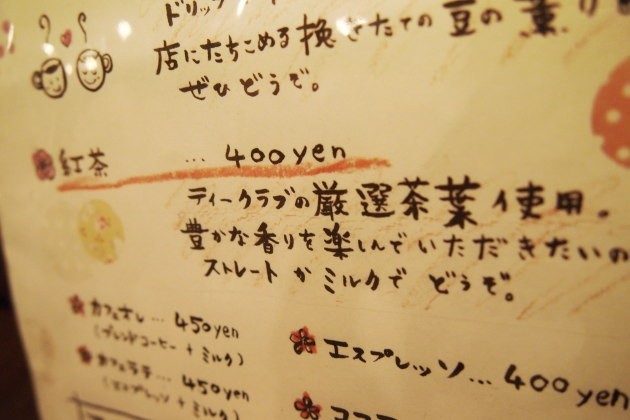 ドリップ
店にたちこめる挽きたての豆の薫り
ぜひどうぞ。
紅茶 ... 400yen
ティークラブの厳選茶葉使用。
豊かな香りを楽しんでいただきたいの
ストレートかミルクで どうぞ。
カフェオレ... 450yen
(ブレンドコーヒー + ミルク)
カフェラテ... 450yen
(エスプレッソ + ミルク)
エスプレッソ... 400yen
ココア